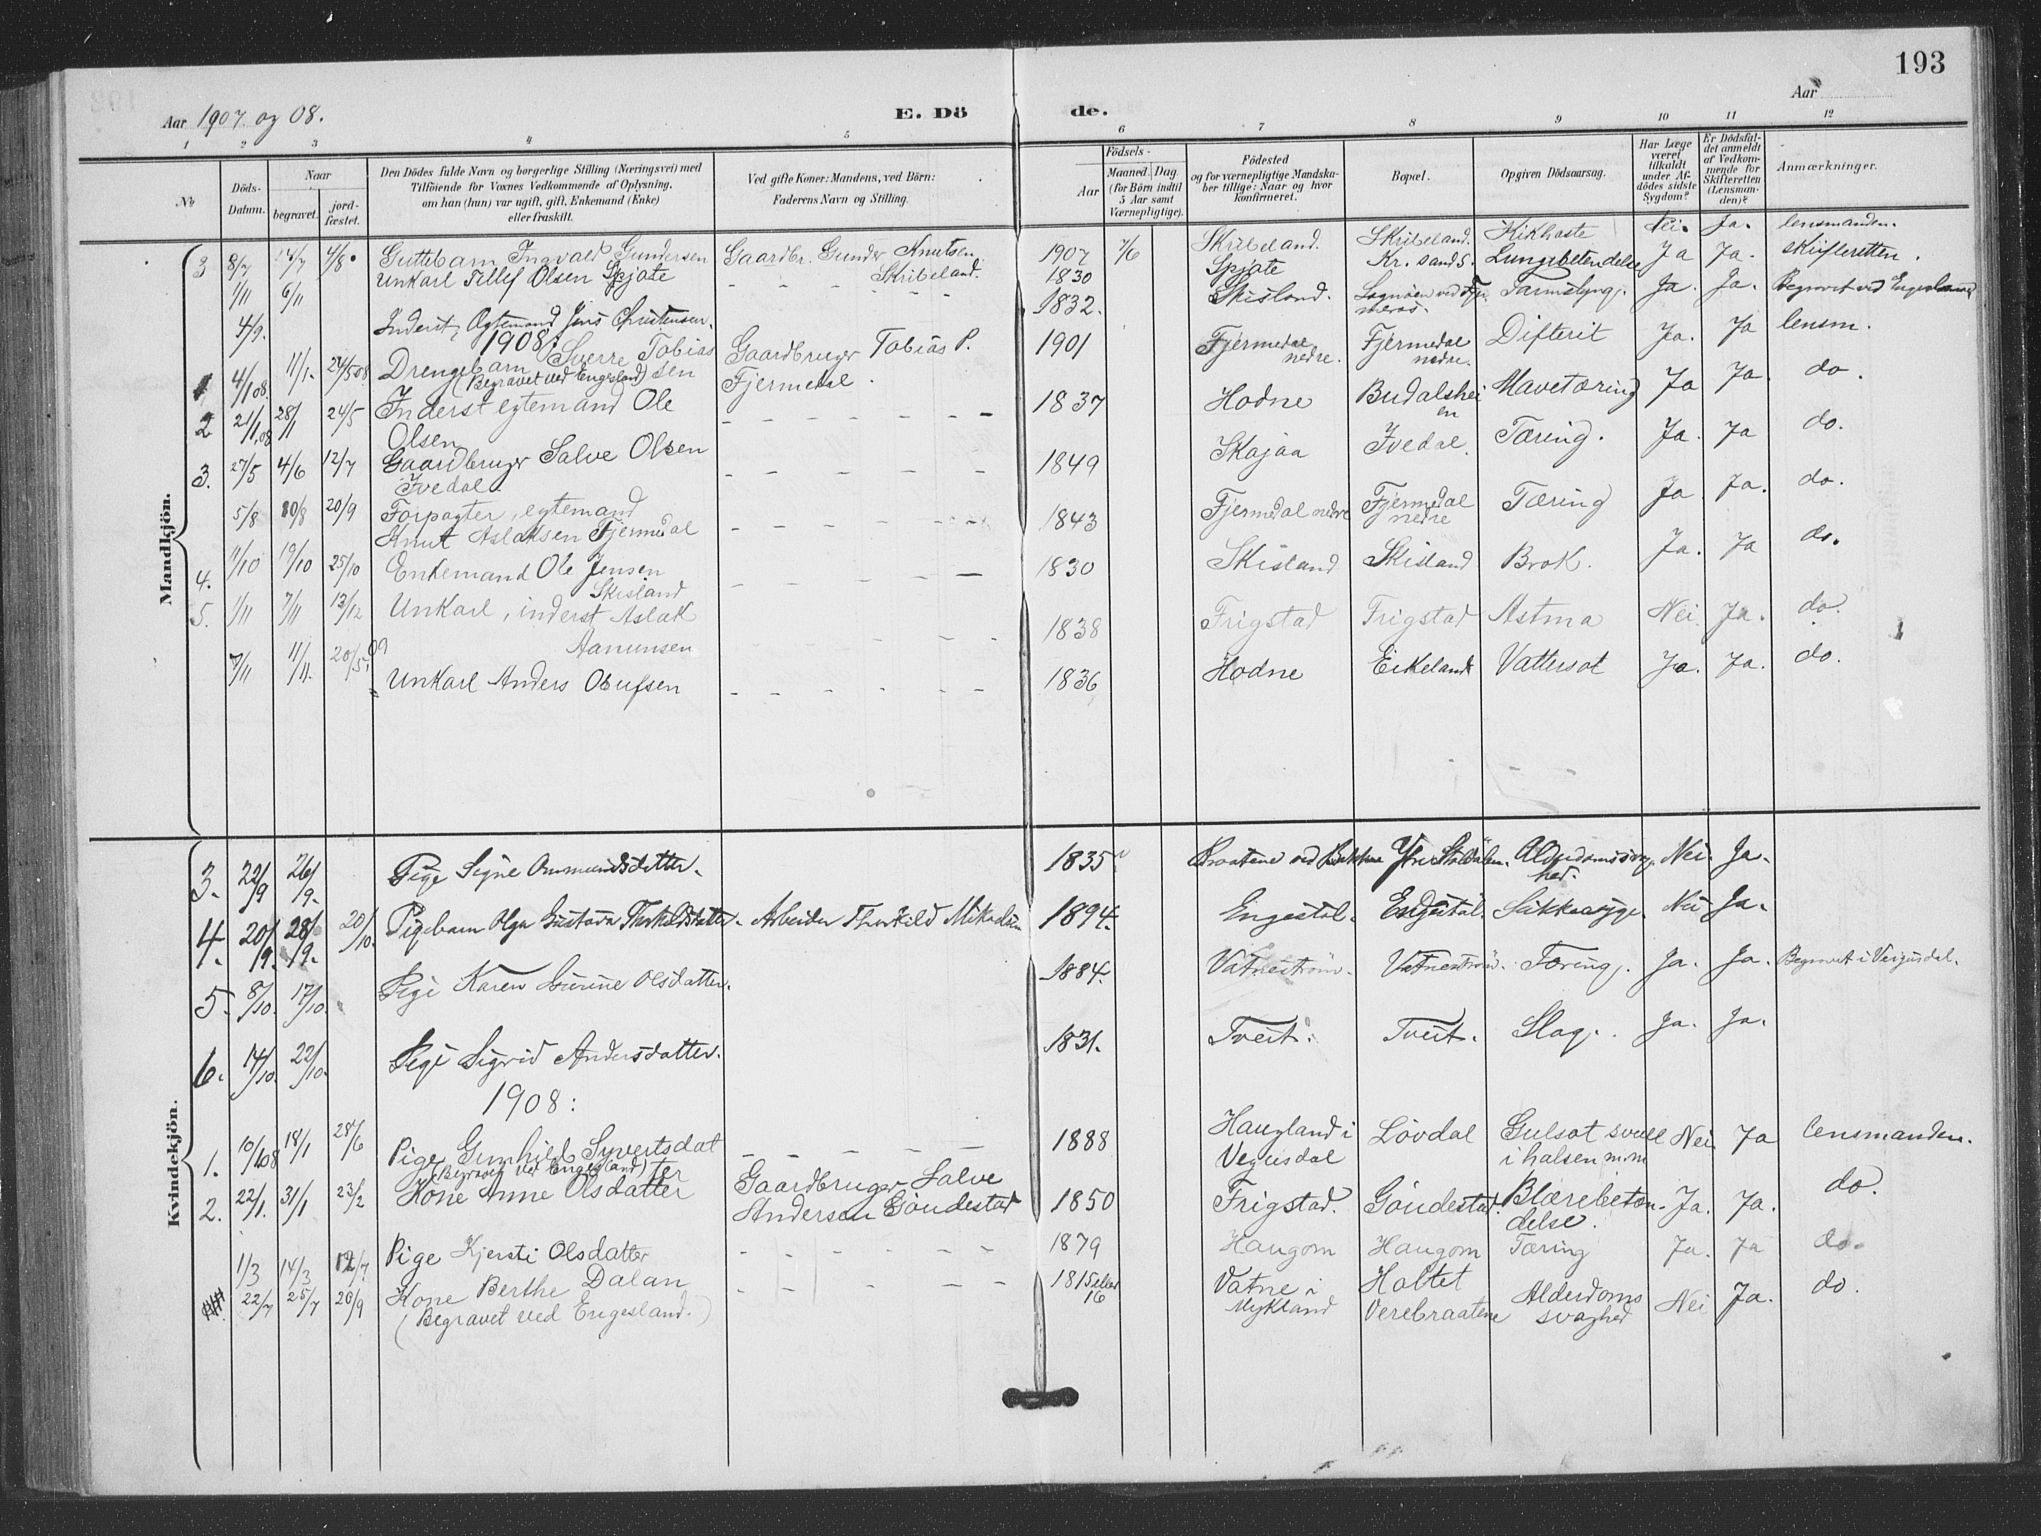 193
Aar 1907 og 08.
E. Dö de.
Aar
1 2 3 4 5 6 7 8 9 10 11 12
No
Döds-Datum.
Naar
begravet.
jord-fæstet.
Den Dödes fulde Navn og borgerlige Stilling (Næringsvei) med
Tilföiende for Voxnes Vedkommende af Oplysning,
om han (hun) var ugift, gift, Enkemand (Enke)
eller fraskilt.
Ved gifte Koner: Mandens, ved Börn:
Faderens Navn og Stilling.
Födsels-
Aar
Maaned. Dag.
(for Börn indtil
5 Aar samt
Værnepligtige).
Födested
og for værnepligtige Mandska-
ber tillige: Naar og hvor
konfirmeret.
Bopæl.
Opgiven Dödsaarsag.
Har Læge
været
tilkaldt
under Af-
dödes sidste
Sygdom?
Er Dödsfal-
det anmeldt
af Vedkom-
mende for
Skifteretten
(Lensman-
den)?
Anmærkninger.
Mandkjön.
3 8/7 14/7 4/8. Guttebarn Ingvald Gundersen Gaardbr. Gunder Knutsen Skribeland. 1907 7/6 Skribeland. Skribeland. Kikhoste Nei. Ja. lensmanden.
1/11 6/11 Unkarl Tellef Olsen Spjote 1830 Spjote Kr.sand S. Lungebetendelse Ja Ja. skifteretten.
4/9. Inderst, Egtemand Jens Christensen. 1832. Skisland. Tarmslyng. Ja. Ja. Begravet ved Engesland
1908:
1 4/1 08. 11/1. 24/5 08 Drengebarn Sverre Tobias
sen (Begravet ved Engesland) Gaardbruger Tobias P. Fjermedal. 1901 Fjermedal nedre. Fjermedal nedre. Difterit Ja. Ja lensm.
2 21/1.08 28/1 24/5 Inderst egtemand Ole
Olsen 1837 Hodne Budalshei
en Mavetæring Ja Ja. do.
3. 27/5 4/6 12/7 Gaardbruger Salve Olsen
Ivedal. 1849 Skajaa Ivedal. Tæring. Ja. Ja do.
5/8 10/8 20/9 Forpagter, egtemand
Knut Aslaksen Fjermedal 1843 Fjermedal nedre Fjermedal nedre Tæring Ja Ja. do.
4. 11/10 19/10 25/10 Enkemand Ole Jensen
Skisland 1830 Skisland Skisland Brok. Ja. Ja do.
5. 1/11 7/11 13/12 Unkarl, inderst Aslak
Aanunsen 1838 Frigstad Frigstad Astma Nei Ja. do.
7/11 11/11. 20/5 09 Unkarl Anders Olufsen 1836 Hodne Eikeland Vattersot Ja. Ja. do.
Kvindekjön.
3. 22/9 26/9. Pige Signe Ommundsdatter. 1835 Braatene ved Bakken Ytre Stoldalen. Alderdomssvag
hed. Nei. Ja.
4. 20/9. 28/9. 20/10. Pigebarn Olga Gustava Thorkildsdatter. Arbeider Thorkild Mikalsen 1894. Engestøl. Engestøl. Sukkersyge. Nei Ja.
5. 8/10. 17/10. Pige Karen Gurine Olsdatter. 1884. Vatneström. Vatneström. Tæring. Ja. Ja. Begravet i Vegusdal.
6. 14/10. 22/10. Pige Sigrid Andersdatter. 1831. Tveit. Tveit. Slag. Ja. Ja.
1908:
1. 10/1 08 18/1 28/6 Pige Gunhild Syvertsdat
ter (Begravet ved Engesland) 1888 Haugland i
Vegusdal Lövdal Gulsot svull
i halsen m m Nei Ja lensmanden.
2. 22/1. 31/1 23/2 Kone Anne Olsdatter Gaardbruger Salve
Andersen Göudestad 1850 Frigstad. Göudestad. Blærebeten-
delse. Ja. Ja. do.
1/3 14/3 12/7 Pige Kjersti Olsdatter 1879 Haugom Haugom Tæring Ja. Ja do.
22/7 25/7 20/9 Kone Berthe Dalan
(Begravet ved Engesland.) 1815 eller
16 Vatne i
Mykland Holtet
Verebraatene Alderdoms
svaghed Nei Ja. do.